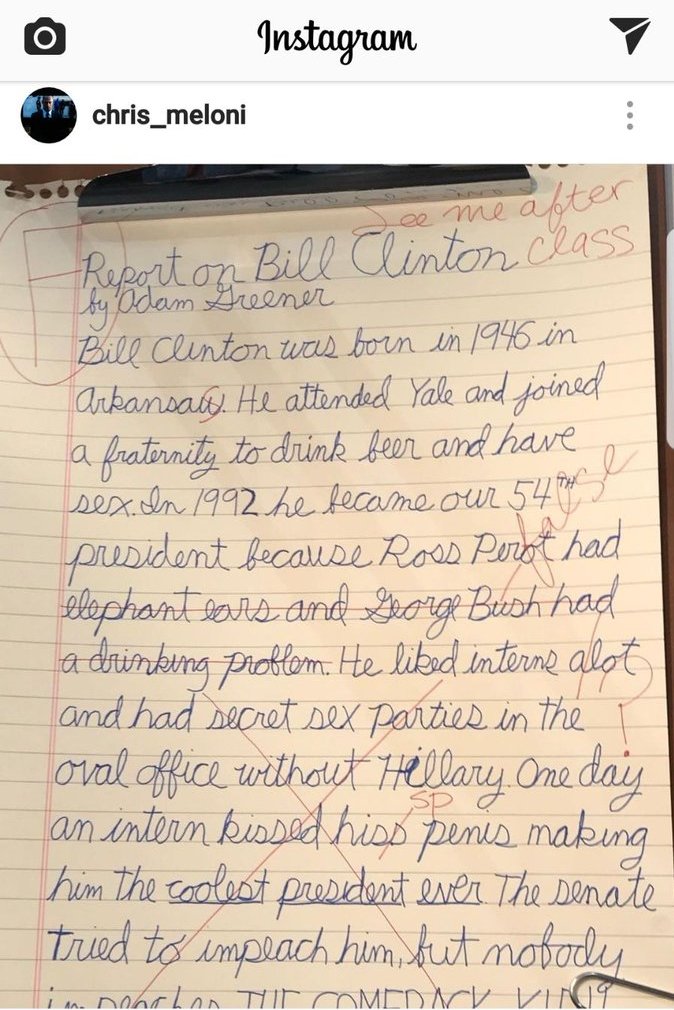 Instagram
chris_meloni
See me after
class
F
Report on Bill Clinton
by Adam Greener
Bill Clinton was born in 1946 in
Arkansaw. He attended Yale and joined
a fraternity to drink beer and have
sex. In 1992 he became our 54TH
false
president because Ross Perot had
elephant ears and George Bush had
a drinking problem. He liked interns alot
and had secret sex parties in the
!?
oval office without Hillary. One day
sp
an intern kissed hiss penis making
him the coolest president ever. The senate
tried to impeach him, but nobody
impeaches THE COMEBACK